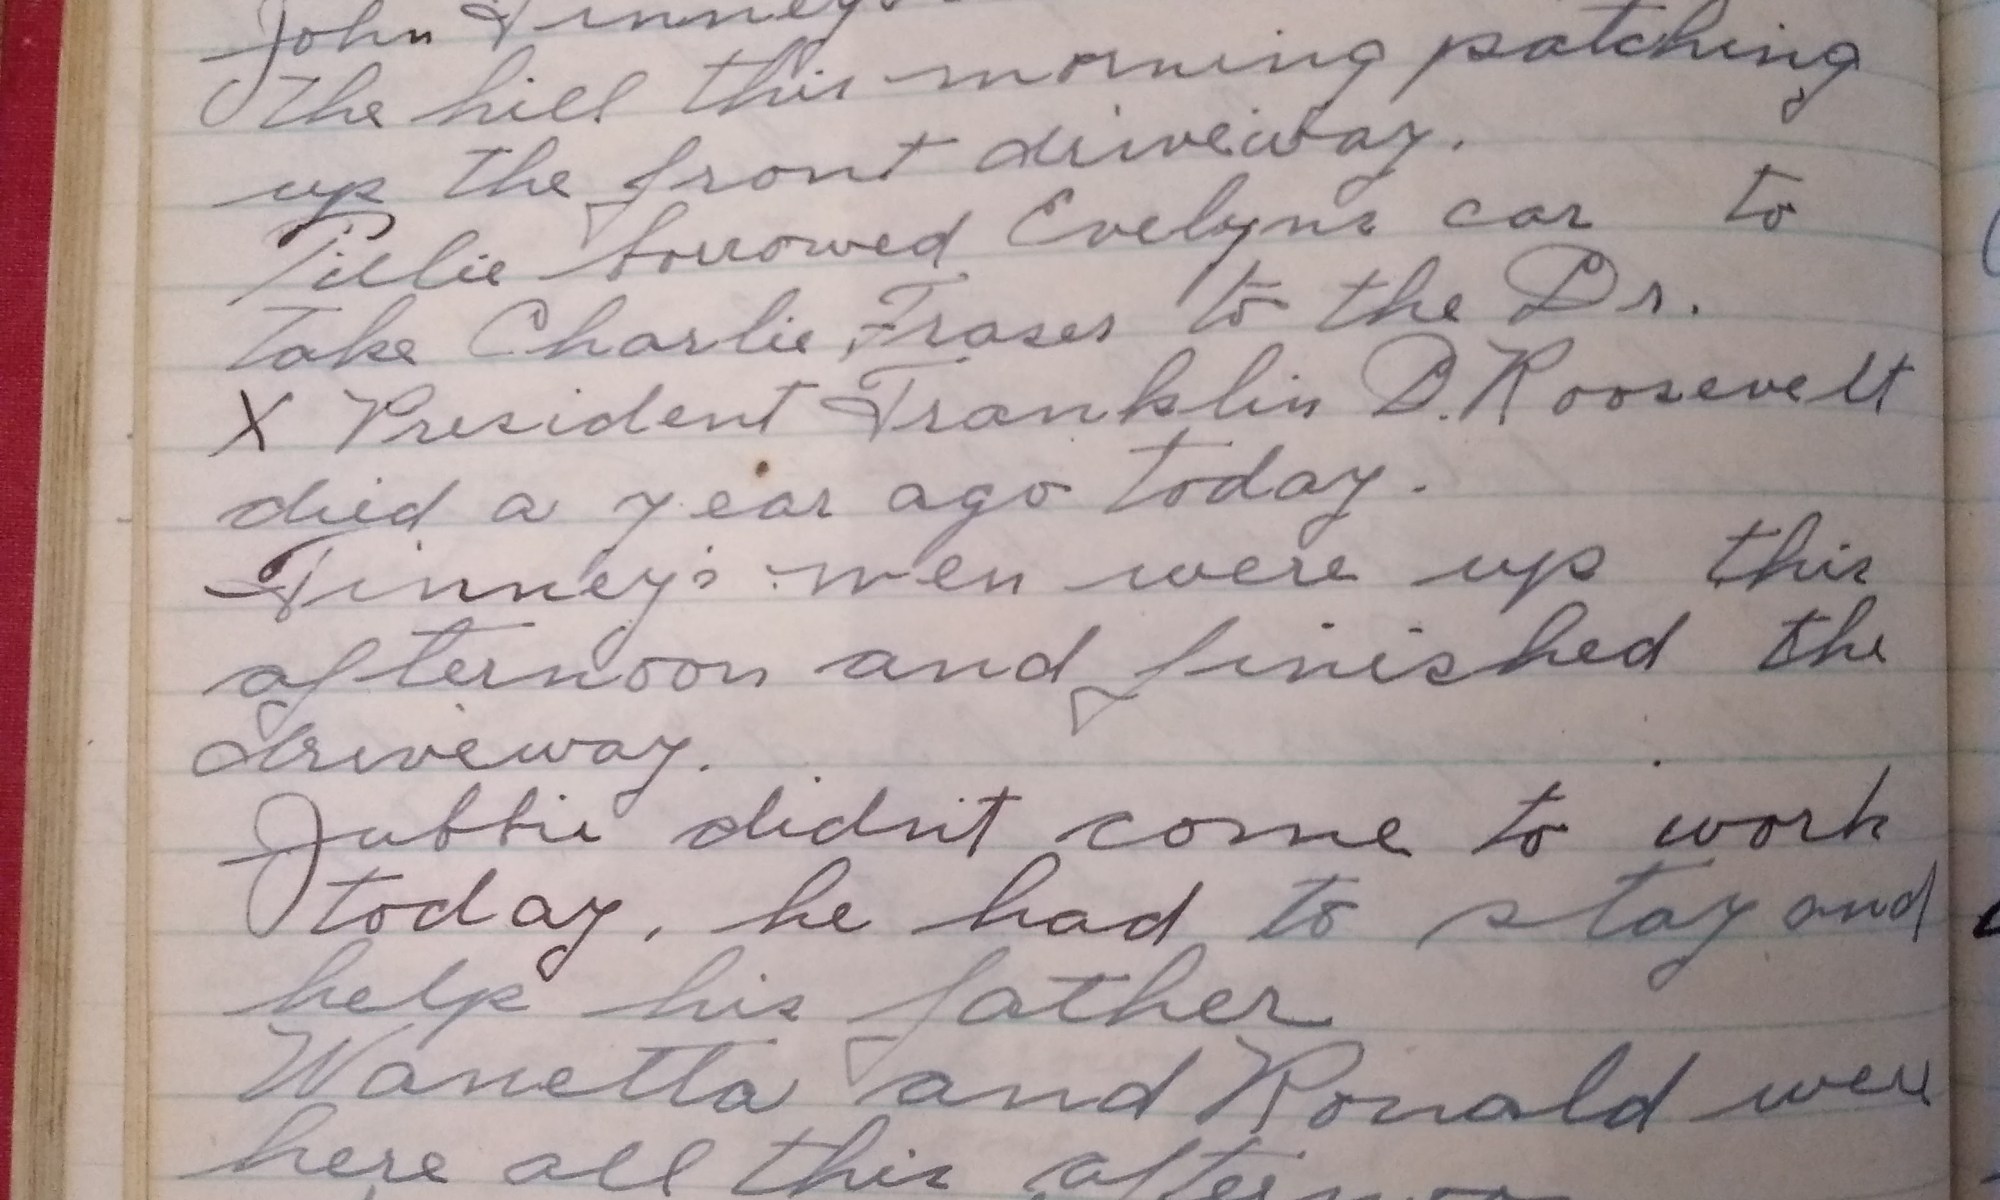 John Tinney
the hill this morning patching
up the front driveway.
Tillie borrowed Evelyns car to
take Charlie Fraser to the Dr.
X President Franklin D. Roosevelt
died a year ago today.
Tinney's men were up this
afternoon and finished the
driveway.
Jubbie didn't come to work
today, he had to stay and
help his father
Wanetta and Ronald were
here all this